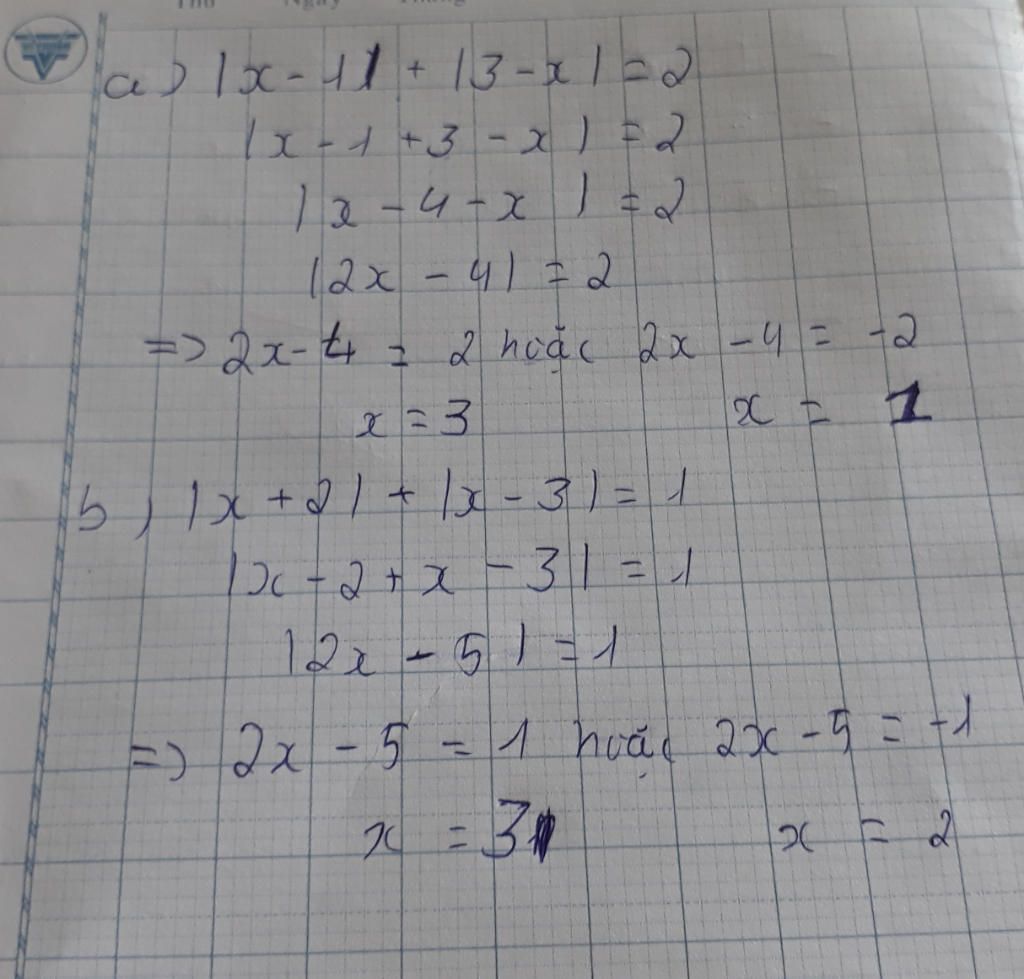 a) |x - 1| + |3 - x| = 2
|x - 1 + 3 - x| = 2
|x - 4 - x | = 2
|2x - 4| = 2
=> 2x - 4 = 2 hoặc 2x - 4 = -2
x = 3 x = 1
b) |x + 2| + |x - 3| = 1
|x - 2 + x - 3| = 1
|2x - 5| = 1
=> 2x - 5 = 1 hoặc 2x - 5 = -1
x = 3 x = 2